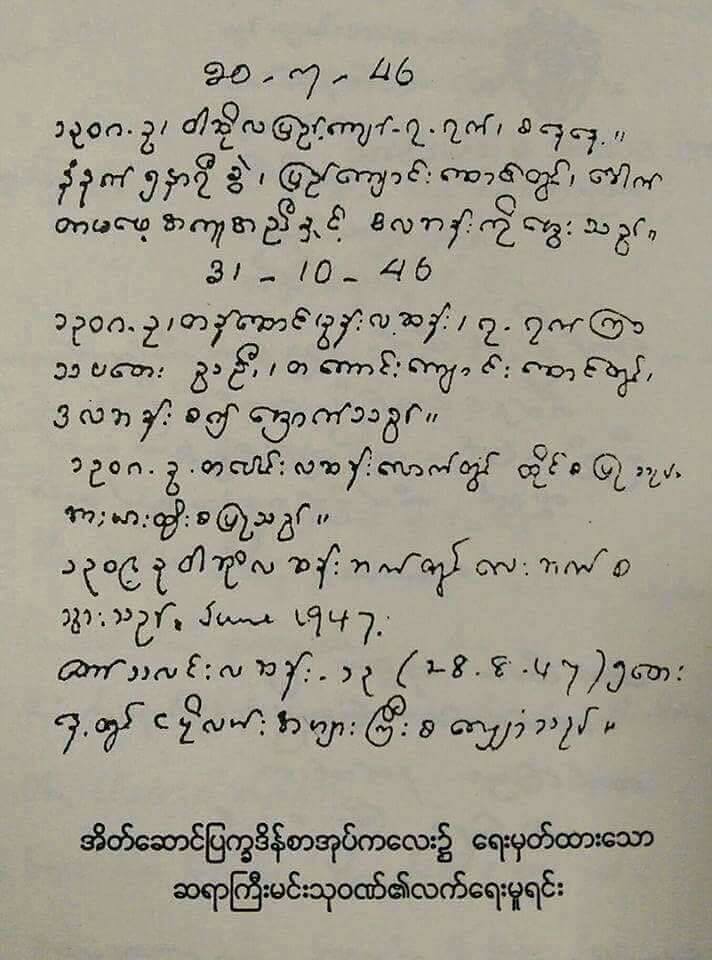 ၃၀ - ၇ - 46
၁၃၀၈ ခု၊ ဝါဆိုလပြည့်ကျော် ၇ ရက်၊ စနေနေ့။
နံနက် ၅ နာရီ ခွဲ၊ ပြည်ကျောင်းဆောင်တွင်၊ ဒေါက်
တာမမေ့ အကူအညီနှင့် မလဘန်းကို မွေးသည်။
31 - 10 - 46
၁၃၀၈ ခု၊ တန်ဆောင်မုန်းလဆန်း၊ ၇ ရက် ကြာ
သပတေး ည ဦး၊ တကောင်းကျောင်းဆောင်တွင်၊
မလဘန်း စ၍ မှောက်သည်။
၁၃၀၈ ခု တပေါင်းလဆန်းလောက်တွင် ထိုင်စပြု
အားယားထိုးစပြုသည်။
၁၃၀၉ ခု ဝါဆိုလဆန်းဘက်တွင် လေးဘက်စ
သွားသည်။ June 1947.
တော်သလင်းလဆန်း ၁၃ (28.8.47) ၅တေး
နေ့တွင် ငမိုလယ်း အများကြီး စ လျှောက်သည်။
အိတ်ဆောင်ပြက္ခဒိန်စာအုပ်ကလေး၌ ရေးမှတ်ထားသော
ဆရာကြီးမင်းသုဝဏ်၏လက်ရေးမူရင်း